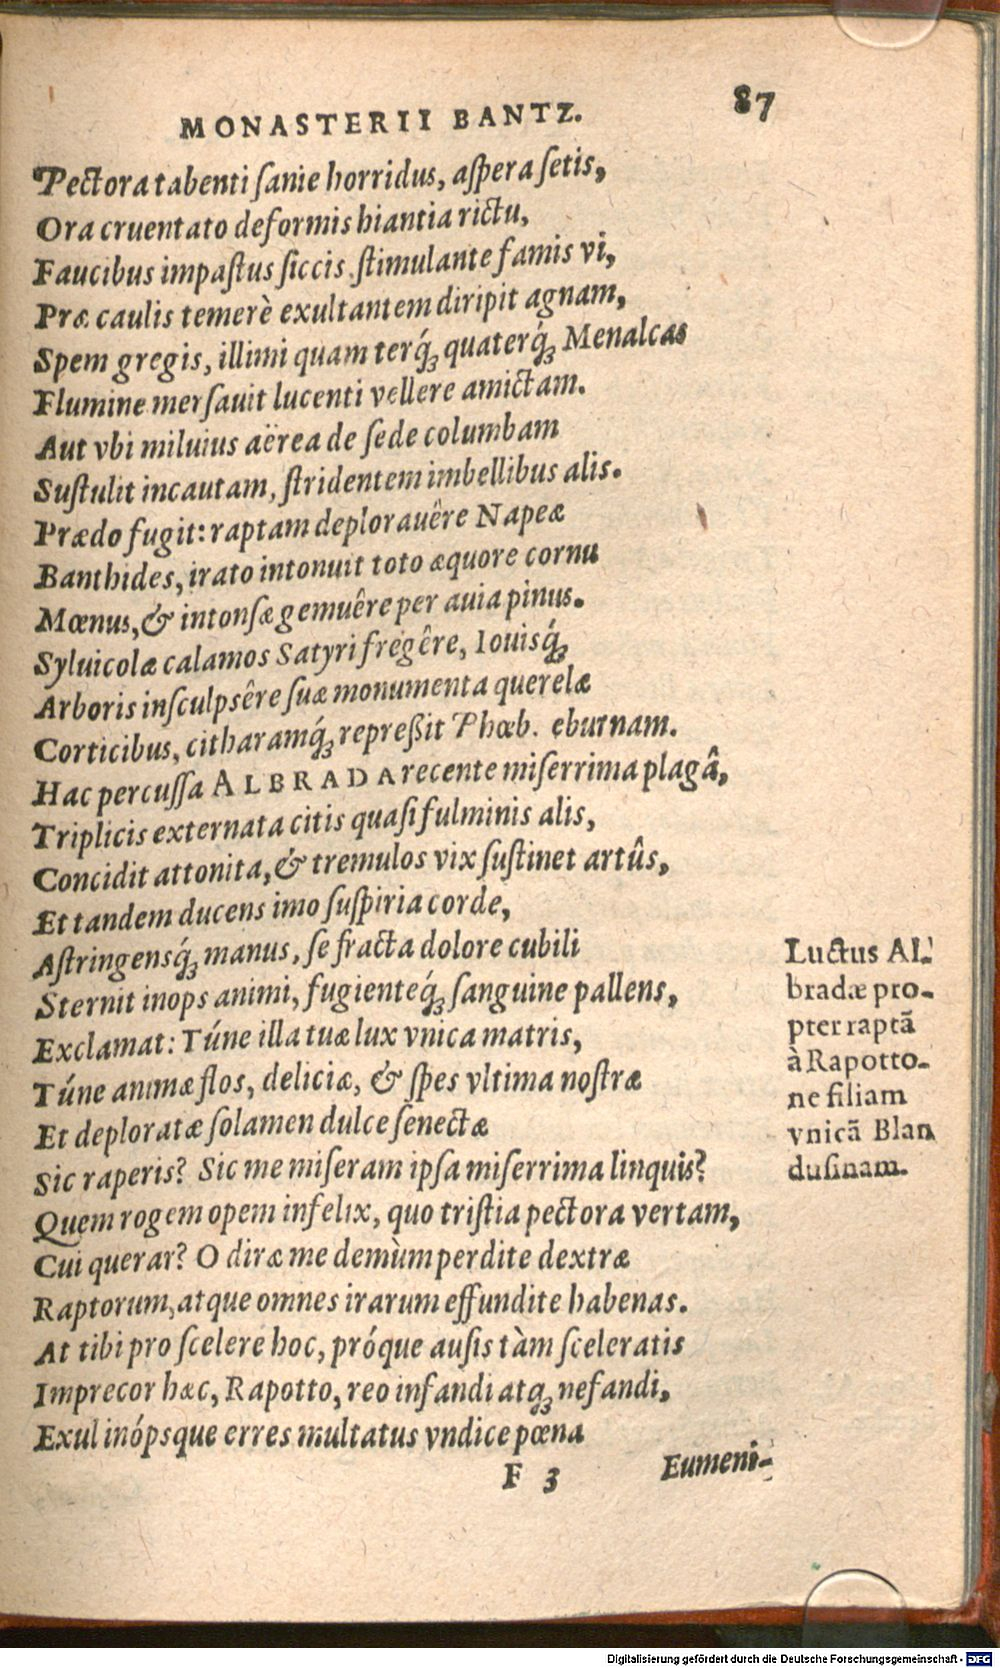 MONASTERII BANTZ. 87
Pectora tabenti ſanie horridus, aſpera ſetis,
Ora cruentato deformis hiantia rictu,
Faucibus impaſtus ſiccis ſtimulante famis vi,
Præ caulis temerè exultantem diripit agnam,
Spem gregis, illimi quam terq́ꝫ quaterq́ꝫ Menalcas
Flumine merſauit lucenti vellere amictam.
Aut vbi miluius aërea de ſede columbam
Suſtulit incautam, ſtridentem imbellibus alis.
Prædo fugit: raptam deplorauêre Napeæ
Banthides, irato intonuit toto æquore cornu
Mœnus, & intonſæ gemuêre per auia pinus.
Syluicolæ calamos Satyri fregêre, Iouisq́ꝫ
Arboris inſculpsêre ſuæ monumenta querelæ
Corticibus, citharamq́ꝫ repreßit Phœb. eburnam.
Hac percuſſa ALBRADA recente miſerrima plagâ,
Triplicis externata citis quaſi fulminis alis,
Concidit attonita, & tremulos vix ſuſtinet artûs,
Et tandem ducens imo ſuſpiria corde,
Aſtringensq́ꝫ manus, ſe fracta dolore cubili
Sternit inops animi, fugienteq́ꝫ ſanguine pallens,
Exclamat: Túne illa tuæ lux vnica matris,
Túne animæ flos, deliciæ, & ſpes vltima noſtræ
Et deploratæ ſolamen dulce ſenectæ
Sic raperis? Sic me miſeram ipſa miſerrima linquis?
Quem rogem opem infelix, quo triſtia pectora vertam,
Cui querar? O diræ me demùm perdite dextræ
Raptorum, atque omnes irarum effundite habenas.
At tibi pro ſcelere hoc, próque auſis tàm ſceleratis
Imprecor hæc, Rapotto, reo infandi atqꝫ nefandi,
Exul inópsque erres multatus vndice pœna
F 3 Eumeni-
Luctus Al-
bradæ pro-
pter raptã
à Rapotto-
ne filiam
vnicã Blan
duſinam.
Digitalisierung gefördert durch die Deutsche Forschungsgemeinschaft - DFG